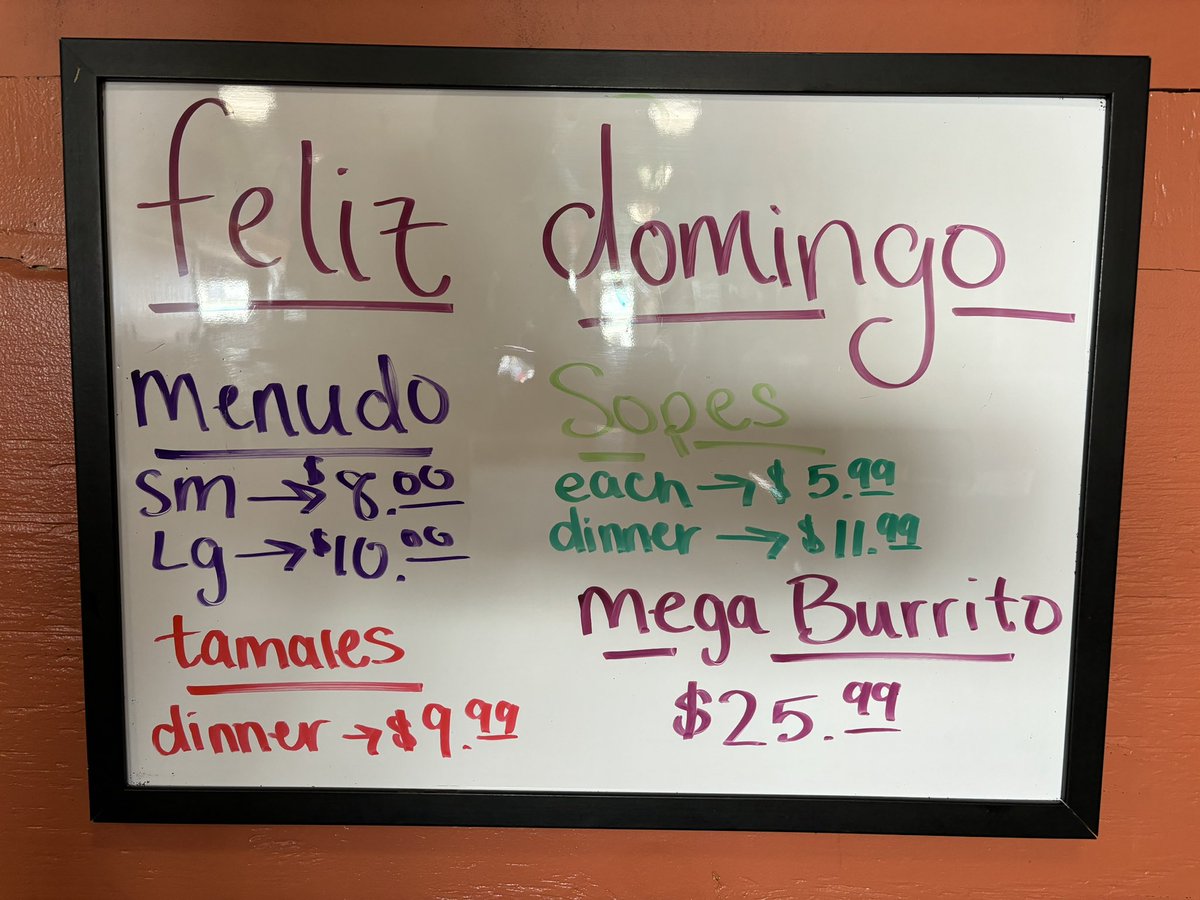 feliz domingo
Menudo
Sm → $8.00
Lg → $10.00
tamales
dinner → $9.99
Sopes
each → $5.99
dinner → $11.99
Mega Burrito
$25.99